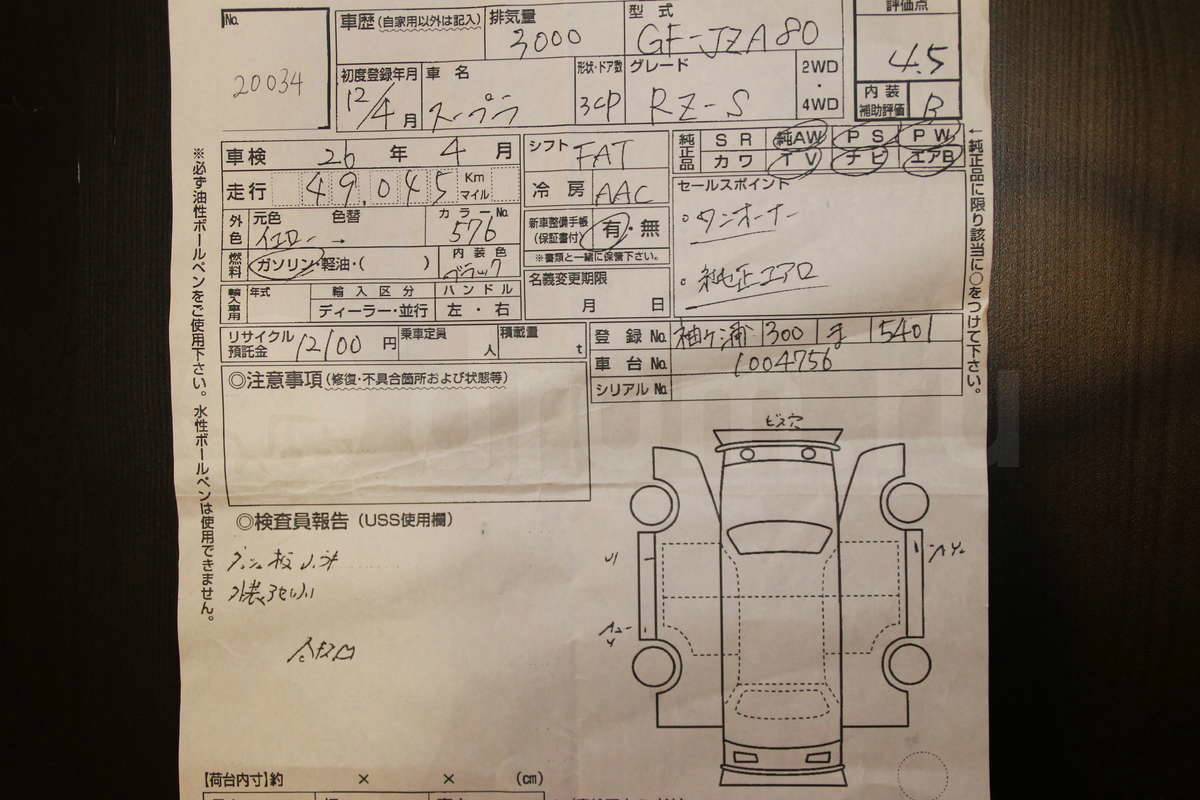 No.
20034
車歴 (自家用以外は記入)
排気量
3000
型式
GF-JZA80
評価点
4.5
初度登録年月
12/4月
車名
スープラ
形状・ドア数
3CP
グレード
RZ-S
2WD
・
4WD
内装
補助評価
B
車検 26年4月
走行 49,045 Km
マイル
シフト FAT
冷房 AAC
純正品
SR 純AW PS PW
カワ TV ナビ エアB
外色
元色 色替
イエロー →
カラーNo.
576
新車整備手帳
(保証書付)
有・無
※書類と一緒に保管下さい。
セールスポイント
・ワンオーナー
・純正エアロ
燃料
ガソリン・軽油・( )
内装色
ブラック
名義変更期限
月 日
輸入車用
年式
輸入区分
ハンドル
ディーラー・並行
左・右
リサイクル
預託金
12100円
乗車定員
人
積載量
t
登録No. 袖ケ浦 300 ま 5401
車台No. 1004756
シリアルNo.
◎注意事項 (修復・不具合箇所および状態等)
◎検査員報告 (USS使用欄)
ビス穴
【荷台内寸】約 × × (cm)
※必ず油性ボールペンをご使用下さい。水性ボールペンは使用できません。
←純正品に限り該当に○をつけて下さい。